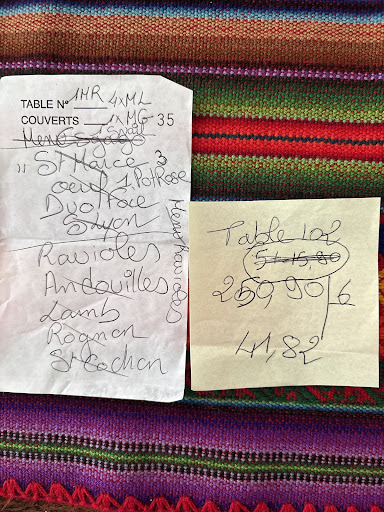 TABLE N° 1HR 4xML
COUVERTS 1xMG 35
Snail
St Marce 3
oeuf 1 Pot Rose
Duo Foie
Menu Ravioles
Ravioles
Andouilles
Lamb
Rognon
St Cochon
Table 102
250,90 6
41,82